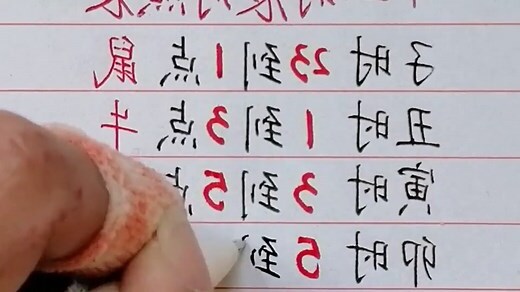 子时 23到1点 鼠
丑时 1到3点 牛
寅时 3到5点
卯时 5到